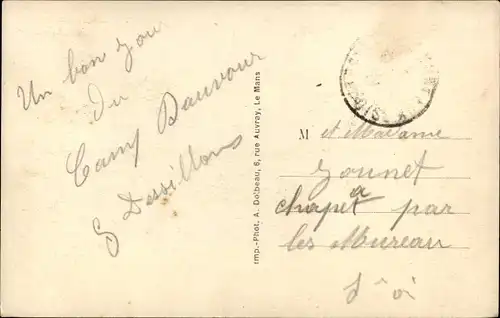 Un bon jou
du
Camp D'auvour
G Desillons
Imp.-Phot. A. Dolbeau, 6, rue Auvray, Le Mans
M et Madame
Jounet
a
chapet par
les Mureau
S et oi